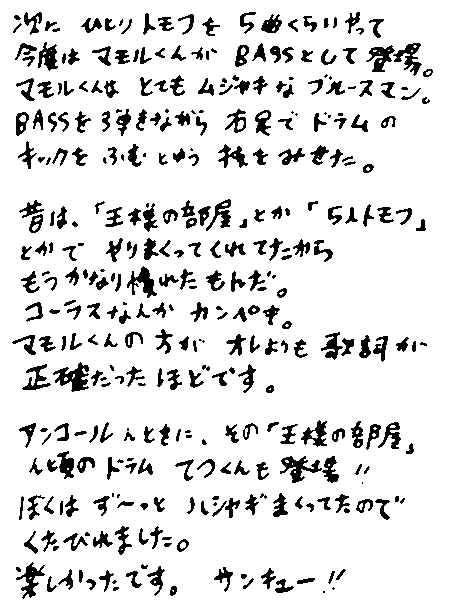 次に ひとりトモフを 5曲くらいやって
今度は マモルくんが BASSとして 登場。
マモルくんは とても ムジャキな ブルースマン。
BASSを 弾きながら 右足で ドラムの
キックを ふむとゆう 技を みせた。
昔は、「王様の部屋」とか 「5人トモフ」
とかで やりまくってくれてたから
もう かなり 慣れたもんだ。
コーラスなんか カンペキ。
マモルくんの 方が オレよりも 歌詞が
正確だったほどです。
アンコールんときに、その「王様の部屋」
ん頃の ドラム てつくんも 登場!!
ぼくは ず〜っと ハシャギまくってたので
くたびれました。
楽しかったです。 サンキュー!!